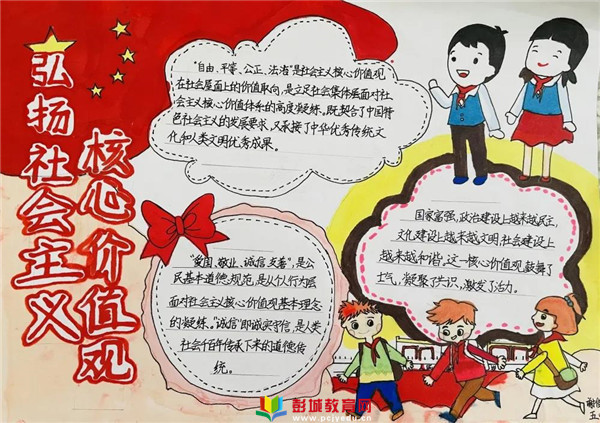 弘扬社会主义
核心价值观
"自由、平等、公正、法治"是社会主义核心价值观
在社会层面上的价值取向,是立足社会集体层面对社
会主义核心价值体系的高度凝练,既契合了中国特
色社会主义的发展要求,又承接了中华优秀传统文
化和人类文明优秀成果。
国家富强,政治建设上越来越民主,
文化建设上越来越文明,社会建设上
越来越和谐,这一核心价值观,鼓舞了
士气,凝聚了共识,激发了活力。
"爱国、敬业、诚信、友善",是公
民基本道德规范,是从个人行为层
面对社会主义核心价值观基本理念
的凝练。"诚信"即诚实守信,是人类
社会千百年传承下来的道德传
统。
彭城教育网
www.pcjyedu.cn
五